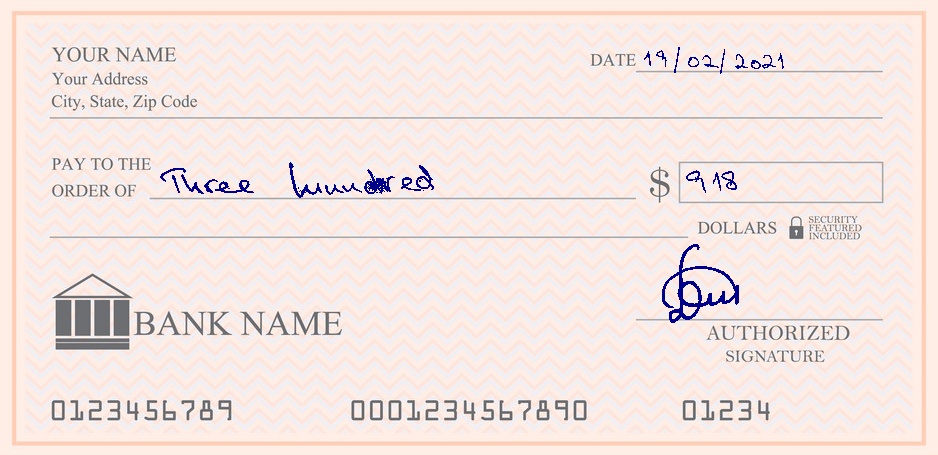 YOUR NAME
Your Address
City, State, Zip Code
DATE 19/02/2021
PAY TO THE
ORDER OF Three hundred
$ 918
DOLLARS
SECURITY
FEATURED
INCLUDED
BANK NAME
AUTHORIZED
SIGNATURE
0123456789 0001234567890 01234